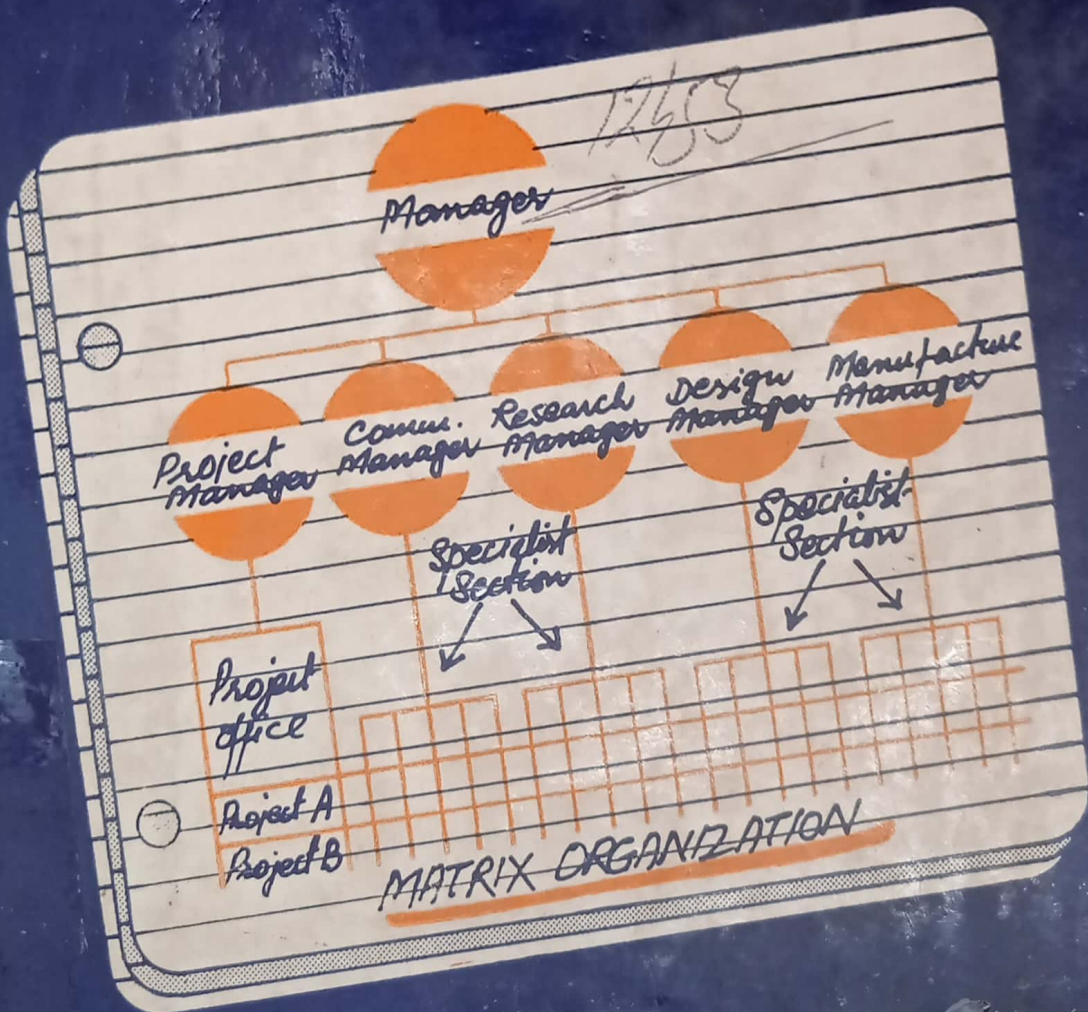 Manager
Project
Manager
Comm.
Manager
Research
Manager
Design
Manager
Manufacture
Manager
Specialist
Section
Specialist
Section
Project
office
Project A
Project B
MATRIX ORGANIZATION